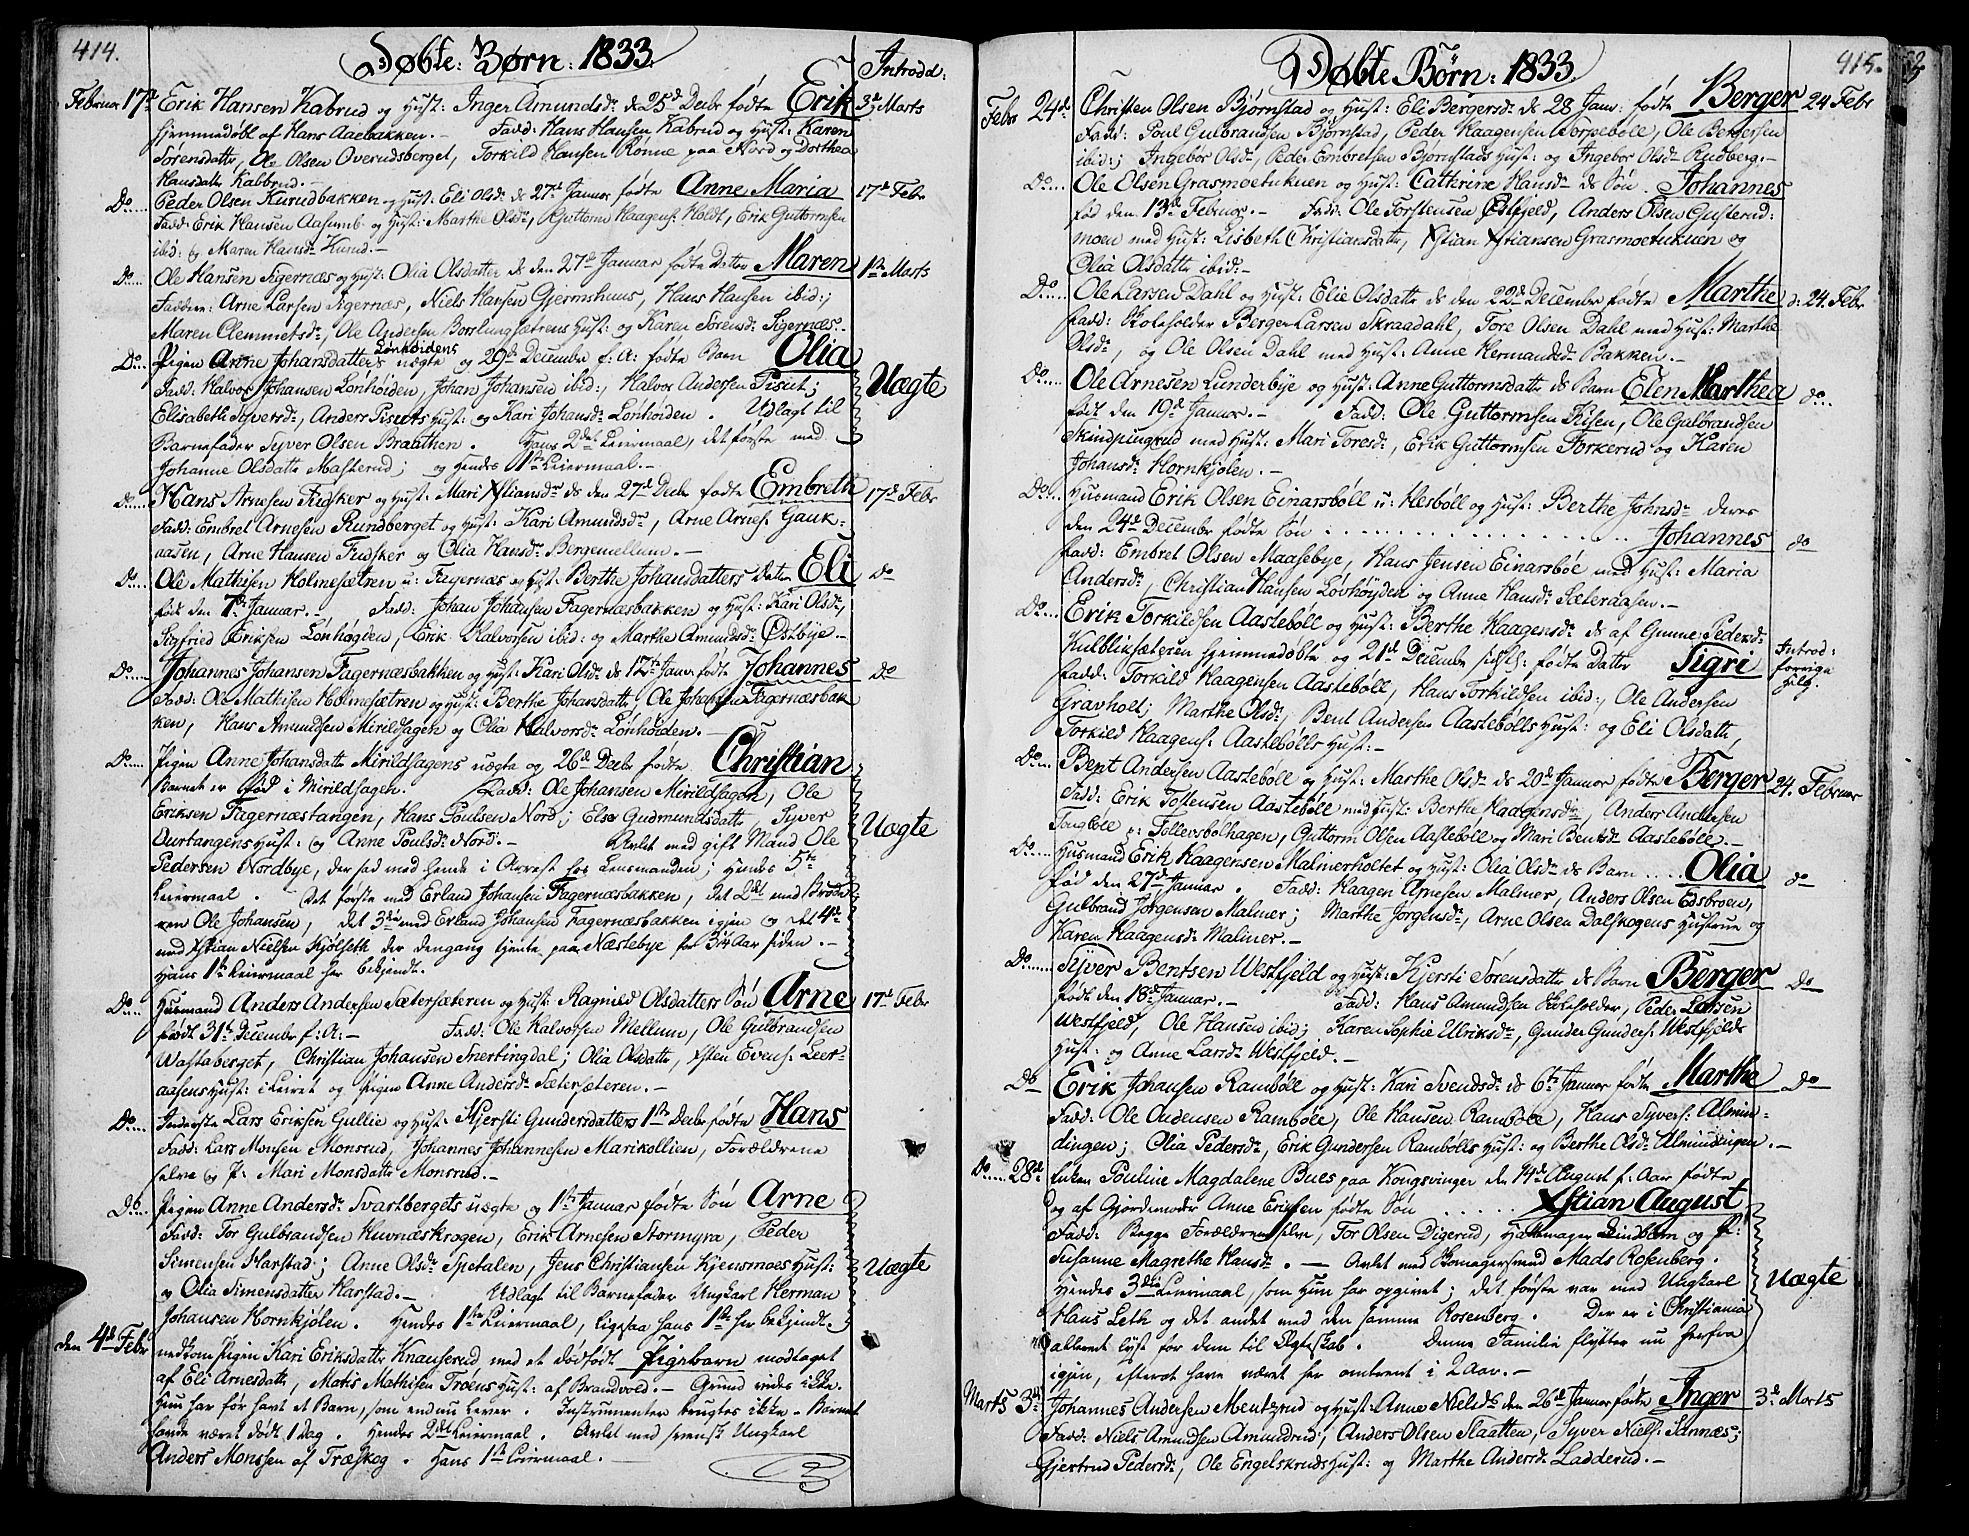 414.
Døbte: Børn: 1833.
Introd:
Februar 17d Erik Hansen Kabrud og Hust: Inger Amundsdr ds 25d Decbr fødte Erik 3d Marts
hjemmedøbt af Hans Aaebakken. Fadd: Hans Hansen Kabrud og Hust: Karen
Sørensdattr, Ole Olsen Overudsberget, Torkild Hansen Rønne paa Nord og Dorthea
Hansdattr Kabbrud.
Do Peder Olsen Kurudbakken og Hust: Eli Olsdr ds 27d Januar fødte Anne Maria 17d Febr
Fadd: Erik Hansen Aasumb. og Hust: Marthe Olsdr, Guttorm Haagens. Holdt, Erik Guttormsen
ibid: og Maren Hansdr Kurud.
Do Ole Hansen Sigernæs og Hust: Olia Olsdatter ds den 27d Januar fødte Datter Maren 1ste Marts
Faddere: Arne Larsen Sigernæs, Niels Hansen Gjermshuus, Hans Hansen ibid:,
Maren Clemmetsdr, Ole Andersen Borslungsætrens Hust: og Karen Sørensdr Sigernæs.
Do Pigen Anne Johansdatter Lønhøidens uægte og 29d Decembr f: A: fødte Barn Olia Uægte
Fadd: Halvor Johansen Lønhøiden, Johan Johansen ibid:, Halvor Andersen Pisut;
Elisabeth Syversdr, Anders Pisuets Hust: og Kari Johansdr Lønhøiden. Udlagt til
Barnefader Syver Olsen Braathen. Hans 2det Leiermaal, det første med
Johanne Olsdattr Masterud; og Hendes 1ste Leiermaal.
Do Hans Arnesen Fidsker og Hust: Mari Xstiansdr ds den 27d Decbr fødte Embreth 17d Febr
Fadd: Embret Arnesen Rundberget og Hust: Kari Amundsdr, Arne Arnes. Gauk-
aasen, Arne Hansen Fidsker og Olia Hansdr Bergemellum.
Do Ole Mathisen Holmesætren u: Fagernæs og Hust: Berthe Johansdatters Datter Eli Do
født den 7de Januar. Fadd: Johan Johansen Fagernæsbakken og Hust: Kari Olsdr,
Sigfried Eriksen Lønhøgden, Erik Halvorsen ibid: og Marthe Amundsdr Østbye.
Do Johannes Johansen Fagernæsbakken og Hust: Kari Olsdr ds 12te Janr fødte Johannes Do
Fadd: Ole Mathisen Holmesætren og Hust: Berthe Johansdattr, Ole Johansen Fagernæsbak
ken, Hans Amundsen Mirildhagen og Olia Halvorsdr Lønhøiden.
Do Pigen Anne Johansdattr Mirildhagens uægte og 26d Decbr fødte Christian
Barnet er Død i Mirildhagen. Fadd: Ole Johansen Mirildhagen, Ole
Eriksen Fagernæstangen, Hans Poulsen Nord; Else Gudmundsdattr, Syver
Ourtangens Hust: og Anne Poulsdr Nord. Avlet med gift Mand Ole Uægte
Pedersen Nordbye, der sad med hende i Arrest hos Lensmanden; Hendes 5te
Leiermaal. Det første med Erland Johansen Fagernæsbakken, Det 2det med Brode
ren Ole Johansen, det 3die med Erland Johansen Fagernæsbakken igjen og Det 4de
med Xstian Nielsen Kjølseth der dengang tjente paa Næstebye for 3/4 Aar siden.
Hans 1ste Leiermaal her bekjendt.
Do Husmand Anders Andersen Sætersæteren og Hust: Ragnild Olsdatters Søn Arne 17d Febr
født 31te Decembr f: A: Fadd: Ole Halvorsen Mellum, Ole Gulbrandsen
Wastaberget, Christian Johansen Snertingdal; Olia Olsdattr, Xsten Evens. Leer-
aasens Hust: i Leiret og Pigen Anne Andersdr Sætersæteren.
Do Inderste Lars Eriksen Gullie og Hust: Kjersti Gundersdatters 1ste Decbr fødte Hans
Fadd: Lars Monsen Monsrud, Johannes Johannesen Marikollien, Forældrene
selve og P: Mari Monsdattr Monsrud.
Do Pigen Anne Andersdr Svartbergets uægte og 1ste Januar fødte Søn Arne
Fadd: Tor Gulbrandsen Kuvnæskrogen, Erik Arnesen Stormyra, Peder
Simensen Harstad; Anne Olsdr Spetalen, Jens Christiansen Kjensmoes Hust: Uægte
og Olia Simensdatter Harstad. Udlagt til Barnefader Ungkarl Herman
Johansen Hornkjølen. Hendes 1ste Leiermaal, ligesaa Hans 1ste her bekjendt.
den 4de Febr nedkom Pigen Kari Eriksdattr Knauserud med et dødfødt Pigebarn modtaget
af Eli Arnesdattr, Matis Mathisen Trøens Hust: af Brandvold. Grund vides ikke.
Hun har før havt et Barn, som endnu lever. Instrumenter brugtes ikke. Barnet
havde været dødt 1 Dag. Hendes 2det Leiermaal. Avlet med svensk Ungkarl
Anders Monssen af Træskog. Hans 1ste Leiermaal.
415.
Døbte Børn: 1833.
Febr 24de Christen Olsen Bjørnstad og Hust: Eli Bergersdr ds 28 Janr: fødte Berger 24 Febr
Fadd: Poul Gulbrandsen Bjørnstad, Peder Haagensen Torpebøll, Ole Bergersen
ibid:; Ingebor Olsdr, Peder Embretsen Bjørnstads Hust: og Ingebor Olsdr Rudberg.
Do Ole Olsen Grasmoetukuen og Hust: Cathrine Hansdr ds Søn Johannes
fød den 13d Februar. Fadd: Ole Torstensen Østfjeld, Anders Olsen Gusterud:
moen med Hust: Lisbeth Christiansdatter, Xstian Xstiansen Grasmoetukuen og
Olia Olsdattr ibid:
Do Ole Larsen Dahl og Hust: Elie Olsdattr ds den 22d December fødte Marthe d: 24. Febr
Fadd: Skoleholder Berger Larsen Skraadahl, Tore Olsen Dahl med Hust: Marthe
Olsdr og Ole Olsen Dahl med Hust: Anne Hermandsdr Bakken.
Do Ole Arnesen Lunderbye og Hust: Anne Guttormsdattr ds Barn Elen Marthea do
født den 19d Januar. Fadd: Ole Guttormsen Risen, Ole Gulbrandsen
Skindpungrud med Hust: Mari Toresdr, Erik Guttormsen Torkerud og Karen
Johansdr Hornkjølen.
Do Husmand Erik Olsen Einarsbøll u: Hesbøll og Hust: Berthe Johnsdr deres
den 24d Decembr fødte Søn Johannes do
Fadd: Embret Olsen Maasebye, Hans Jensen Einarsbøl med Hust: Maria
Andersdr, Christian Hansen Løvhøyden og Anne Hansdr Sæteraasen.
Do Erik Torkildsen Aastebøll og Hust: Berthe Haagensdr ds af Gunne Pedersdr
Kulbliksæteren hjemmedøbte og 21d Decembr sidstl: fødte Datter Sigri Introd: forrige Helg.
Fadd: Torkild Haagensen Aastebøll, Hans Torkildsen ibid:, Ole Andersen
Gravholt; Marthe Olsdr, Bent Andersen Aastebølls Hust: og Eli Olsdattr,
Torkild Haagens. Aastebølls Hust:
Do Bent Andersen Aastebøll og Hust: Marthe Olsdr ds 20d Januar fødte Berger 24. Februar
Fadd: Erik Tostensen Aastebøll med Hust: Berthe Haagensdr, Anders Andersen
Tongbøll p: Follersbølhagen, Guttorm Olsen Aastebøll og Mari Bentsdr Aastebøll.
Do Husmand Erik Haagensen Malmerholtet og Hust: Olia Olsdr ds Barn Olia do
fød den 27d Januar. Fadd: Haagen Arnesen Malmer, Anders Olsen Edsbroen,
Gulbrand Jørgensen Malmer; Marthe Jørgensdr, Arne Olsen Dalskogens Hustrue og
Karen Haagensdr Malmer.
Do Syver Bentsen Westfjeld og Hust: Kjersti Sørensdattr ds Barn Berger Do
født den 18d Januar. Fadd: Hans Amundsen Skoleholder, Peder Larsen
Westfjeld, Ole Hansen ibid; Karen Sophie Ulriksdr, Gunder Gunders. Westfjelds
Hust: og Anne Larsdr Westfjeld.
Do Erik Johansen Rambøll og Hust: Kari Svendsdr ds 6te Januar fødte Marthe Do
Fadd: Ole Audensen Rambøll, Ole Hansen Rambøll, Hans Syvers. Almin-
dingen; Olia Pedersdr, Erik Gundersen Rambølls Hust: og Berthe Olsdr Almindingen.
Do 28de Enken Pouline Magdalene Bues paa Kongsvinger den 14de August f: Aar fødte
og af Gjordemoder Anne Eriksen fødte Søn Xstian August
Fadd: Begge Forældrene selve, Tor Olsen Digerud, Hattemager Lindblom og P:
Susanne Magrethe Hansdr. Avlet med Bomagersvend Mads Rosenberg.
Hendes 3die Leiermaal, som Hun har opgivet; det første var med Ungkarl Uægte
Hans Leth og det andet med den samme Rosenberg. Der er i Christiania
allerede lyst for dem til Ægteskab. Denne Familie flytter nu herfra
igjen, efterat have været her omtrent i 2 Aar.
Marts 3de Johannes Andersen Mentzrud og Hust: Anne Nielsdr den 26d Januar fødte Inger 3d Marts
Fadd: Niels Amundsen Amundrud, Anders Olsen Slaatten, Syver Niels. Sannæs;
Gjertrud Pedersdr, Ole Engelskruds Hust: og Marthe Andersdr Ladderud.